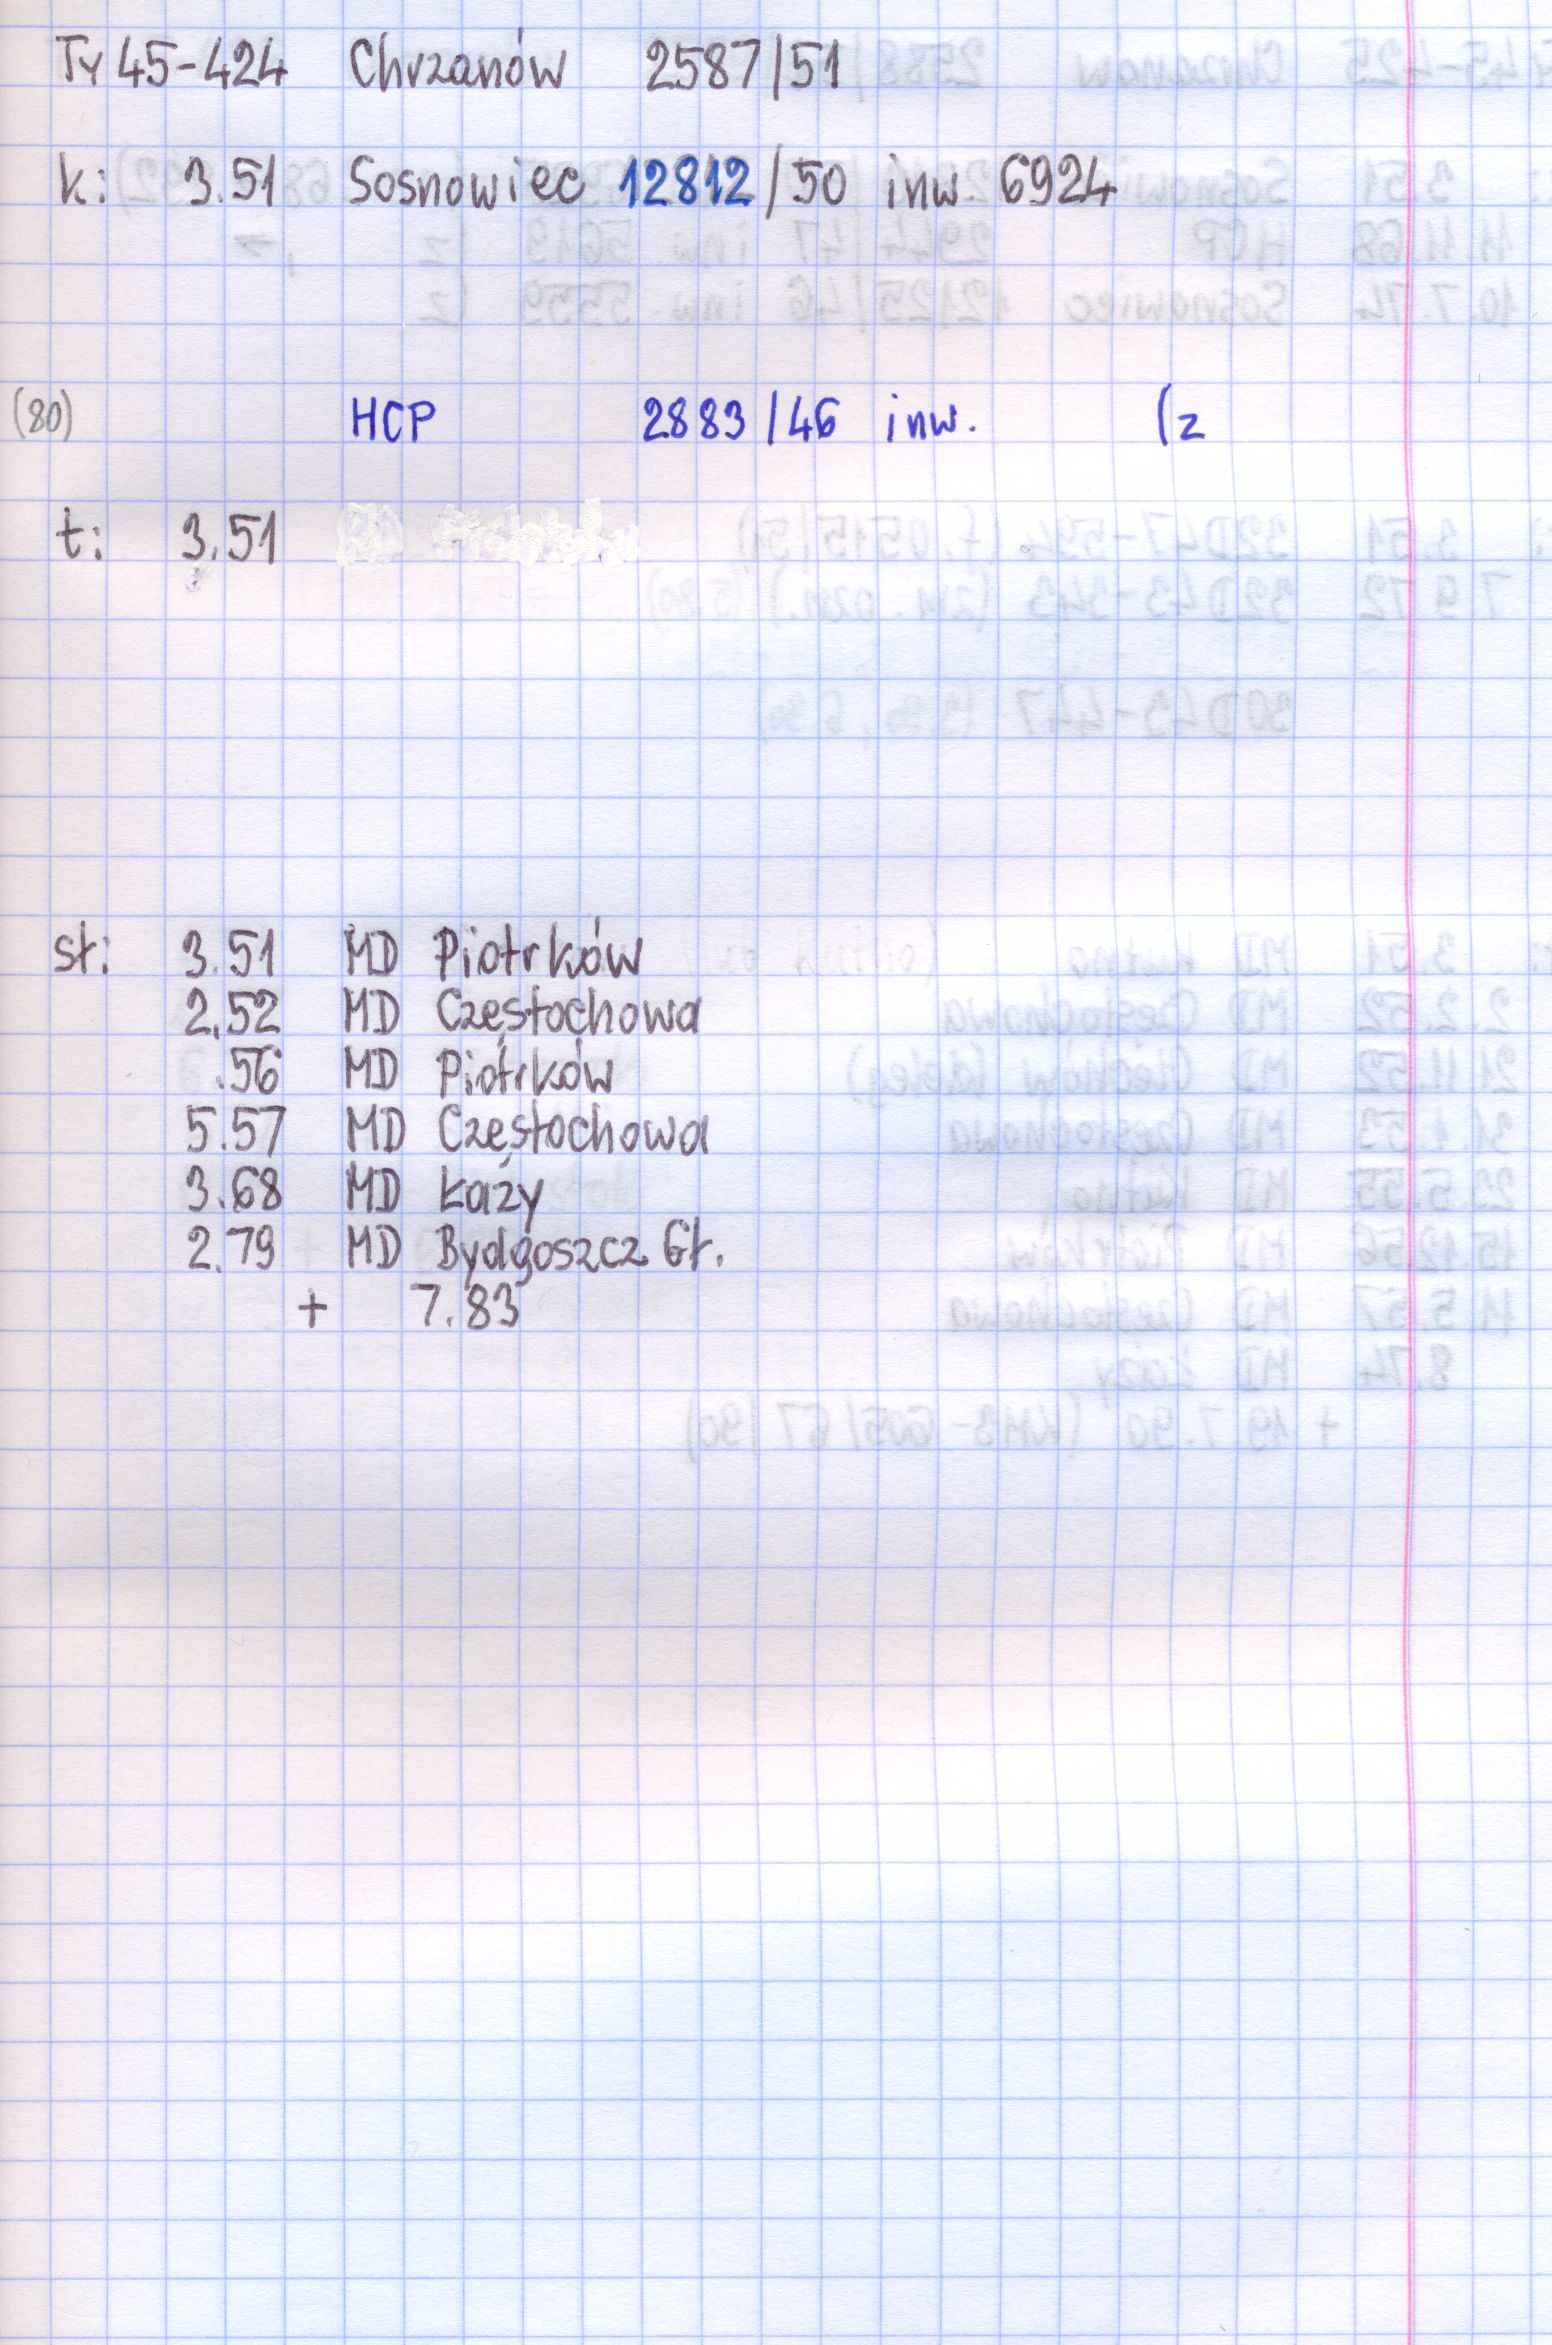 Ty45-424 Chrzanów 2587/51
k: 3.51 Sosnowiec 12812/50 inw. 6924
(80) HCP 2883/46 inw. (z
t: 3.51
st: 3.51 MD Piotrków
2.52 MD Częstochowa
.56 MD Piotrków
5.57 MD Częstochowa
3.68 MD Łazy
2.79 MD Bydgoszcz Gł.
+ 7.83